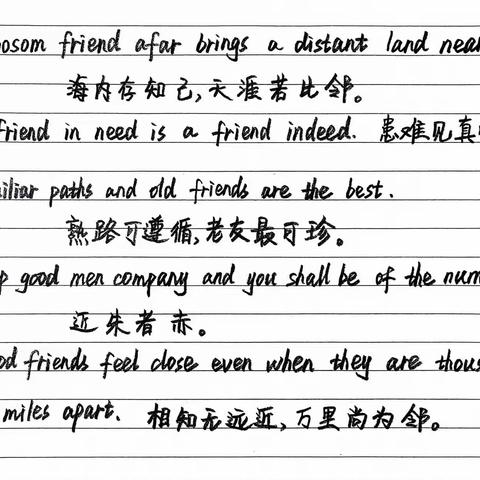 osom friend afar brings a distant land near
海内存知己,天涯若比邻。
friend in need is a friend indeed. 患难见真
iliar paths and old friends are the best.
熟路可遵循,老友最可珍。
p good men company and you shall be of the num
近朱者赤。
od friends feel close even when they are thous
miles apart. 相知无远近,万里尚为邻。